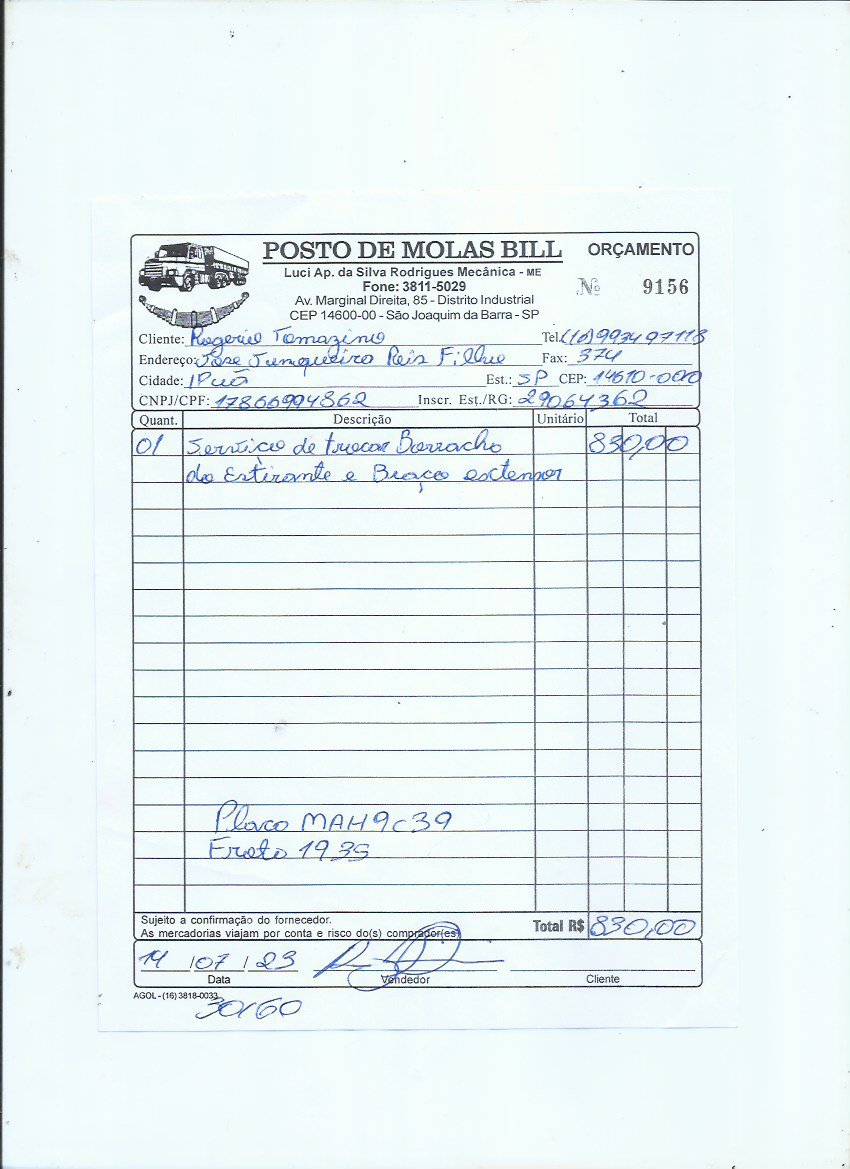 POSTO DE MOLAS BILL
ORÇAMENTO
Luci Ap. da Silva Rodrigues Mecânica - ME
Fone: 3811-5029
Nº 9156
Av. Marginal Direita, 85 - Distrito Industrial
CEP 14600-00 - São Joaquim da Barra - SP
Cliente: Rogerio Tomazino Tel. (16)993497118
Endereço: Jose Junqueira Reis Filho Fax: 374
Cidade: IPuã Est.: SP CEP: 14610-000
CNPJ/CPF: 17866994862 Inscr. Est./RG: 29064362
Quant. Descrição Unitário Total
01 Serviço de trocar Borracha 830,00
do Estirante e Braço extensor
Placa MAH9c39
Frota 1935
Sujeito a confirmação do fornecedor.
As mercadorias viajam por conta e risco do(s) comprador(es)
Total R$ 830,00
14 / 07 / 23
Data Vendedor Cliente
AGOL - (16) 3818-0033
30/60